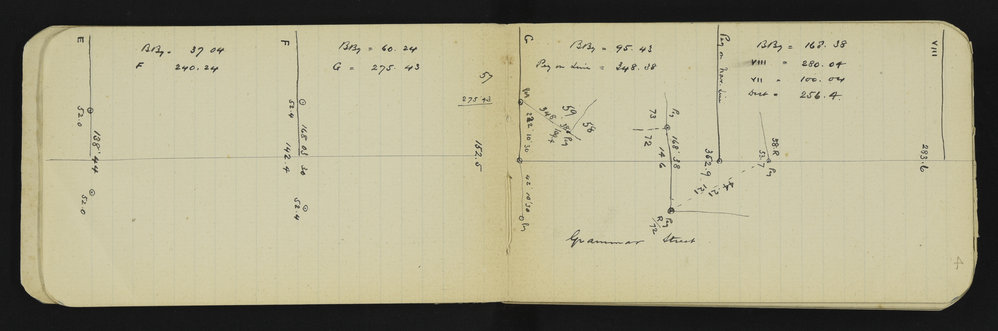 E
BBg = 37 04
F 240.24
52.0
138° 44
52.0
F
BBg = 60.24
G = 275.43
52.4
168 03 30
142.4
52.4
57
275 43
152.5
G
BBg = 95.43
Peg on Line = 348.38
59
58
Peg
42 10 30
Peg
73
72
Peg
168° 38
14.6
Peg
R/72
Grammar Street
Peg on Nav. Line
352.9
BBg = 168.38
VIII = 280.04
VII = 100.04
Dist = 256.4
58 R
53.7
Peg
VIII
293.6
4